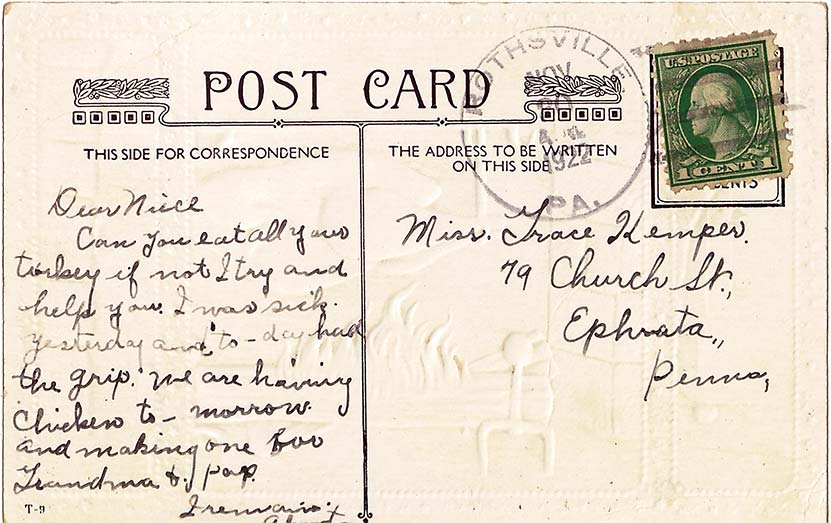 POST CARD
THIS SIDE FOR CORRESPONDENCE
THE ADDRESS TO BE WRITTEN
ON THIS SIDE
ROTHSVILLE
NOV
A.M.
1922
PA.
U.S. POSTAGE
1 CENT 1
CENTS
Dear Niece
Can you eat all your
turkey if not I try and
help you. I was sick.
yesterday and to-day had
the grip. We are having
Chicken to-morrow.
and making one for
Grandma & pap.
I remain
Miss. Grace Kemper.
79 Church St.,
Ephrata,,
Penna,
T-9